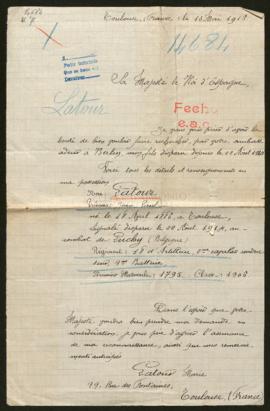 Toulouse, France le 15 Mai 1918
14684
Sa Majesté le Roi d'Espagne
Latour
Fecho
e.a.c.
Je viens vous prier d'avoir la
bonté de bien vouloir faire rechercher, par votre ambassadeur
à Berlin, mon fils disparu depuis le 22 Août 1914
Voici tous les détails et renseignements en
ma possession
Nom: Latour
Prénoms: Jean
né le 18 Avril 1886, à Toulouse,
Signalé disparu le 22 Août 1914, au
combat de (Belgique)
Régiment: 18 d'Artillerie
9me Batterie
Numéro Matricule: 1795. Classe: 1906
Dans l'espoir que votre
Majesté, voudra bien prendre ma demande en
considération, je vous prie d'agréer l'assurance
de ma reconnaissance, ainsi que mes remerciements
anticipés
Latour Marie
29, Rue des Fontaines,
Toulouse, (France)